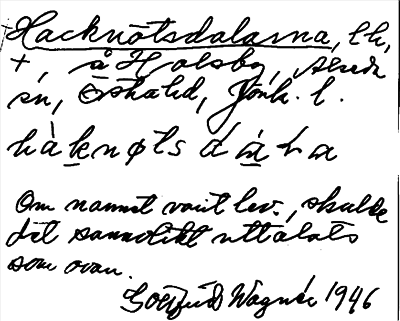 Hacknötsdalarna, lh,
+, å Holsby, Alseda
sn, Östra hd, Jönk. l.
hàknøts dàɦa
Om namnet varit lev., skulle
det sannolikt uttalats
som ovan.
Gottfrid Wagnér 1946